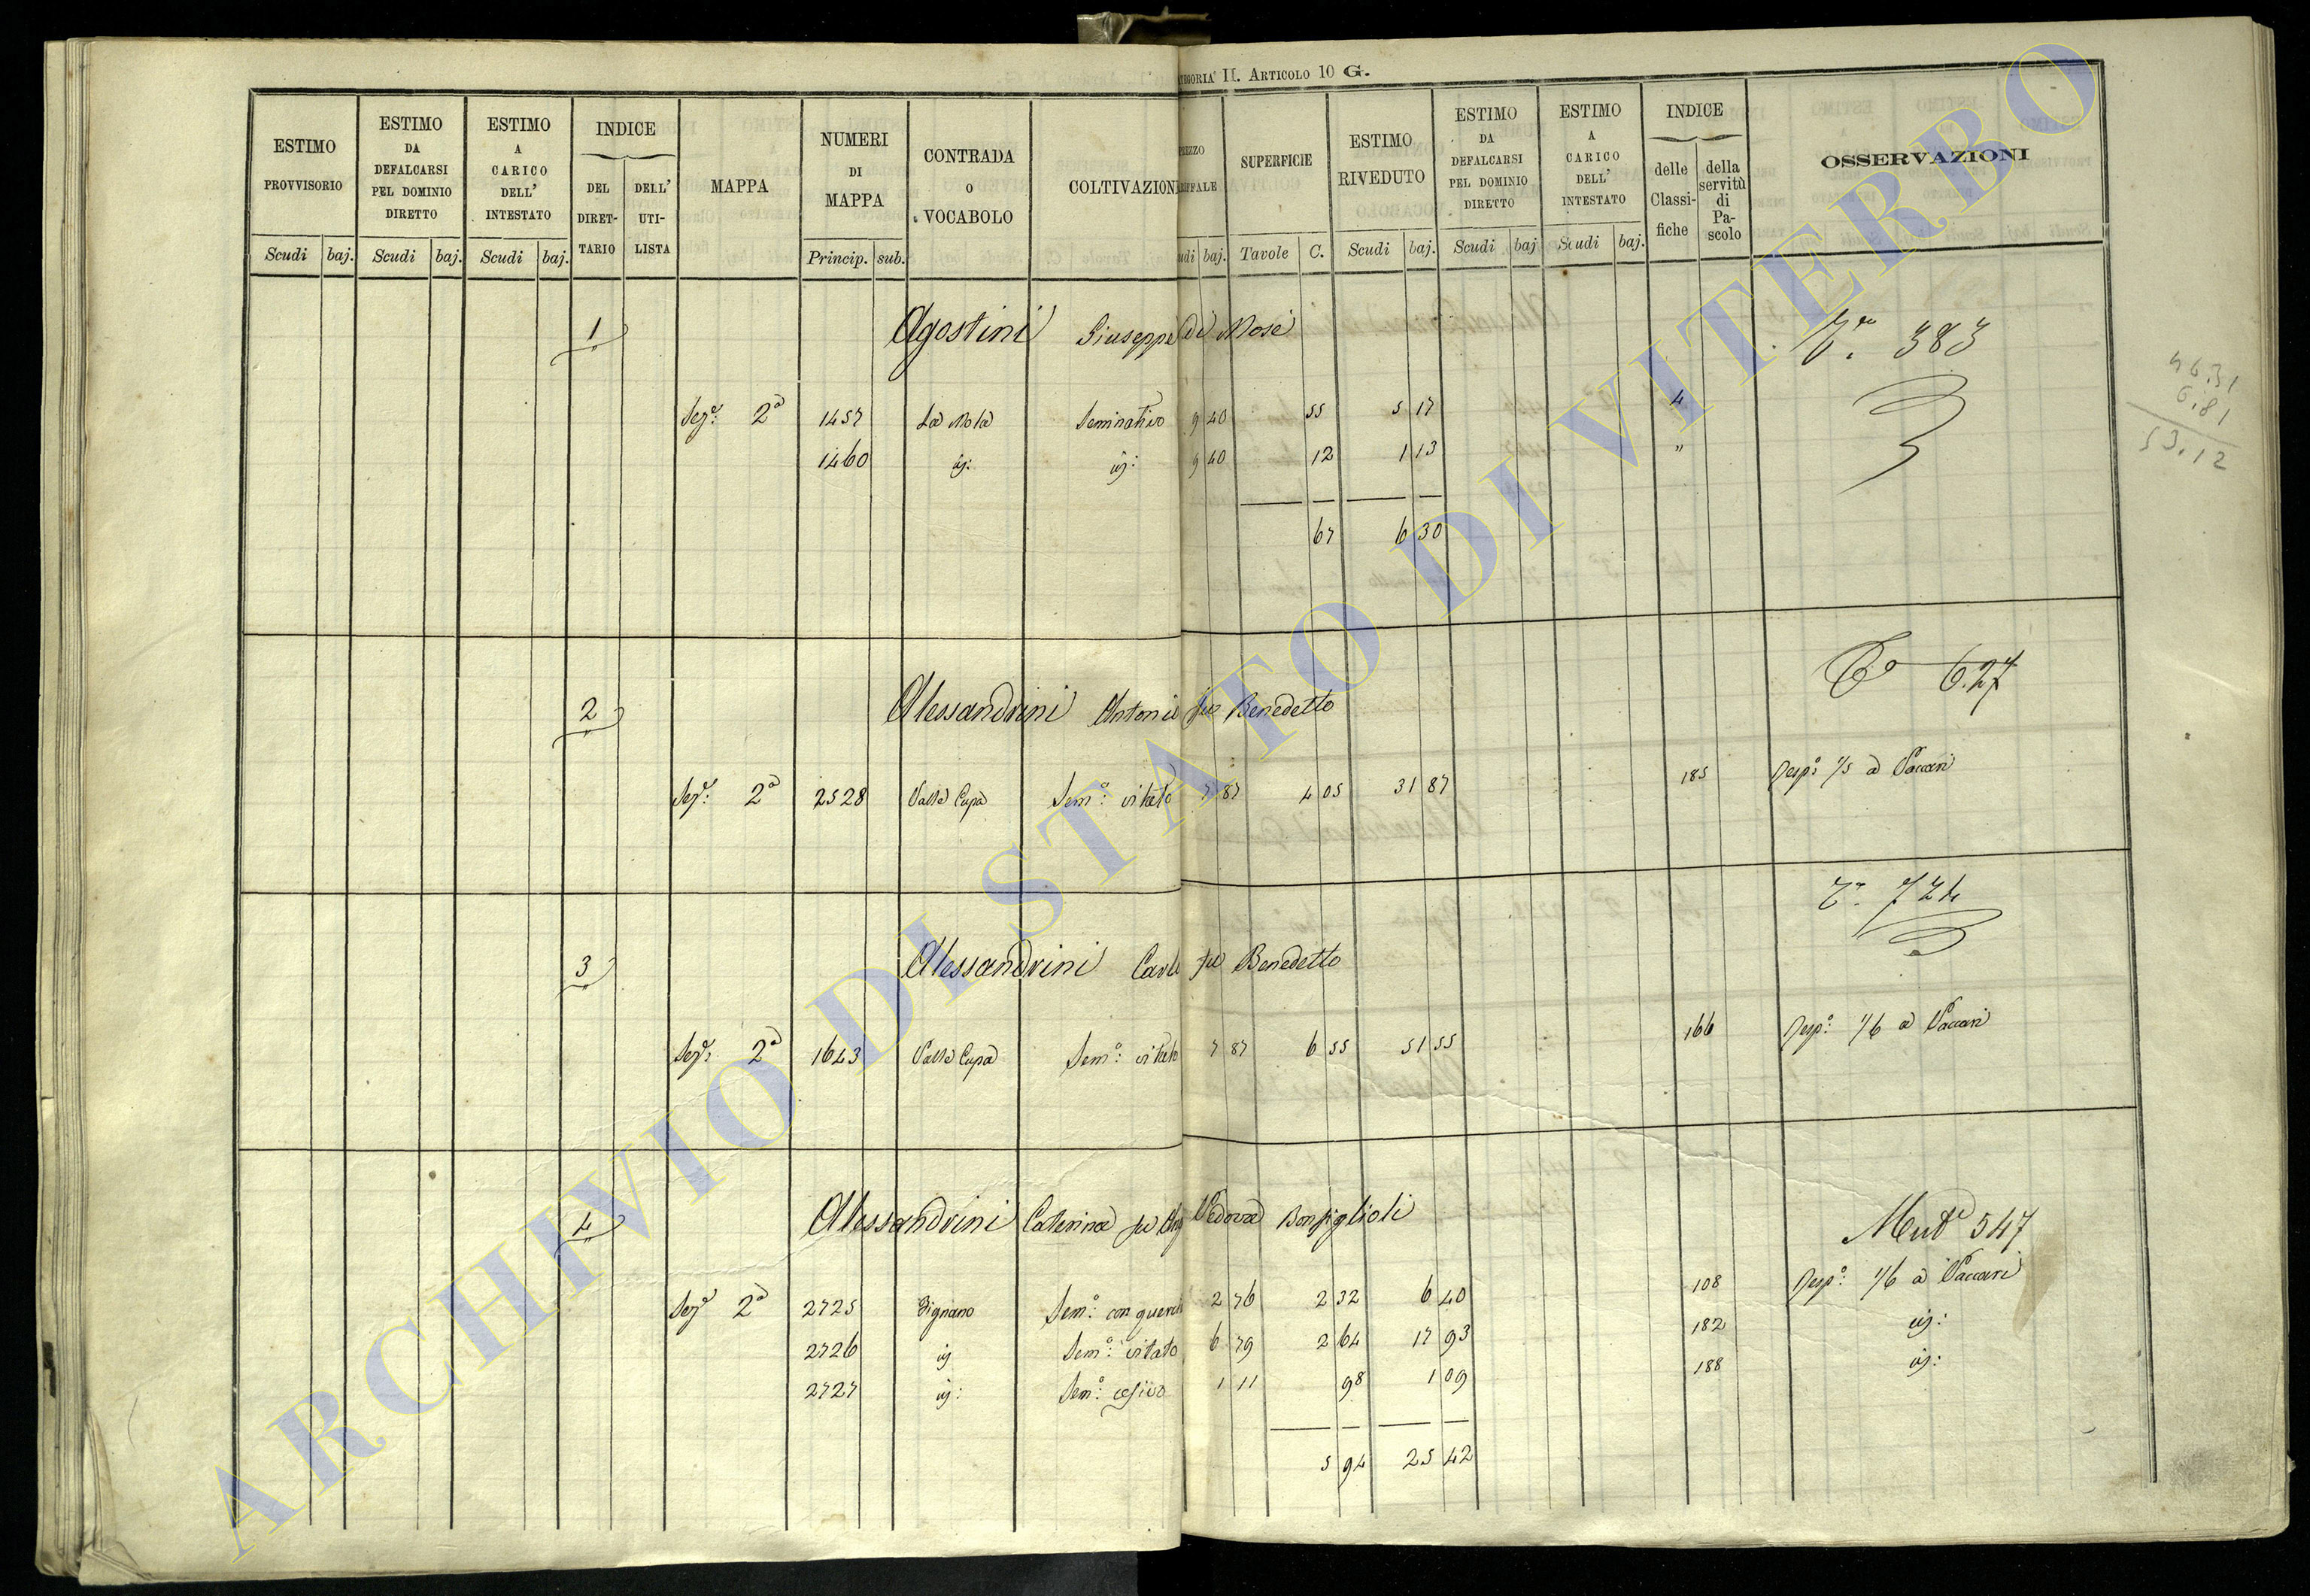 II. ARTICOLO 10 G.
ESTIMO PROVVISORIO
ESTIMO DA DEFALCARSI PEL DOMINIO DIRETTO
ESTIMO A CARICO DELL' INTESTATO
INDICE
DEL DIRET-TARIO
DELL' UTI-LISTA
MAPPA
NUMERI DI MAPPA
CONTRADA O VOCABOLO
COLTIVAZION
SUPERFICIE
ESTIMO RIVEDUTO
ESTIMO DA DEFALCARSI PEL DOMINIO DIRETTO
ESTIMO A CARICO DELL' INTESTATO
INDICE
delle Classi-fiche
della servitù di Pa-scolo
OSSERVAZIONI
Scudi baj. Scudi baj. Scudi baj. Princip. sub. baj. Tavole C. Scudi baj. Scudi baj Scudi baj.
1 Agostini Giuseppe di Mosè 383
2ª 1457 La Mola Seminativo 9 40 55 5 17 4
1460 9 40 12 1 13 "
67 6 30
46.31
6.81
53.12
2 Alessandrini Antonio fu Benedetto 627
2ª 2528 Valle Cupa Semº: vitato 7 87 4 05 31 87 185 Respº: 1/5 a Vaccari
3 Alessandrini Carlo fu Benedetto 724
2ª 1643 Valle Cupa Semº: vitato 7 87 6 55 51 55 166 Respº: 1/6 a Vaccari
4 Alessandrini Caterina fu Vedova Bonfiglioli 547
2ª 2725 Semº: con querce 2 76 2 32 6 40 108 Respº: 1/6 a Vaccari
2726 Semº: vitato 6 79 2 64 17 93 182
2727 1 11 98 1 09 188
5 94 25 42
ARCHIVIO DI STATO DI VITERBO